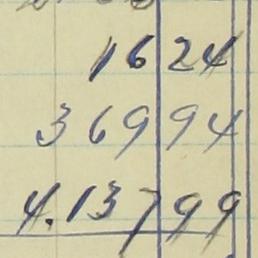 16 24
369 94
4.137 99